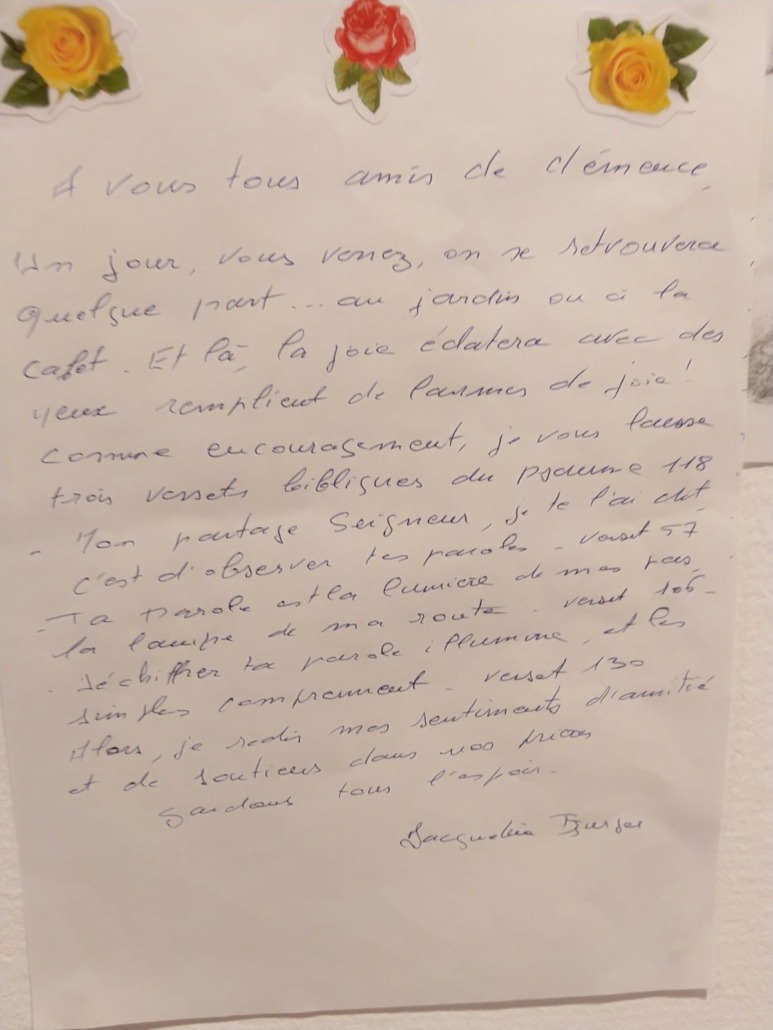 A vous tous amis de Clémence,
Un jour, vous verrez, on se retrouvera
quelque part... au jardin ou à la
cafet. Et là, la joie éclatera avec des
yeux remplient de larmes de joie !
Comme encouragement, je vous laisse
trois versets bibliques du psaume 118
- Mon partage Seigneur, je te l'ai dit,
c'est d'observer tes paroles - verset 57
- Ta parole est la lumière de mes pas,
la lampe de ma route - verset 105 -
- Déchiffrer ta parole illumine, et les
simples comprennent - verset 130
Alors, je redis mes sentiments d'amitié
et de soutiens dans nos prières
Gardons tous l'espoir -
Jacqueline